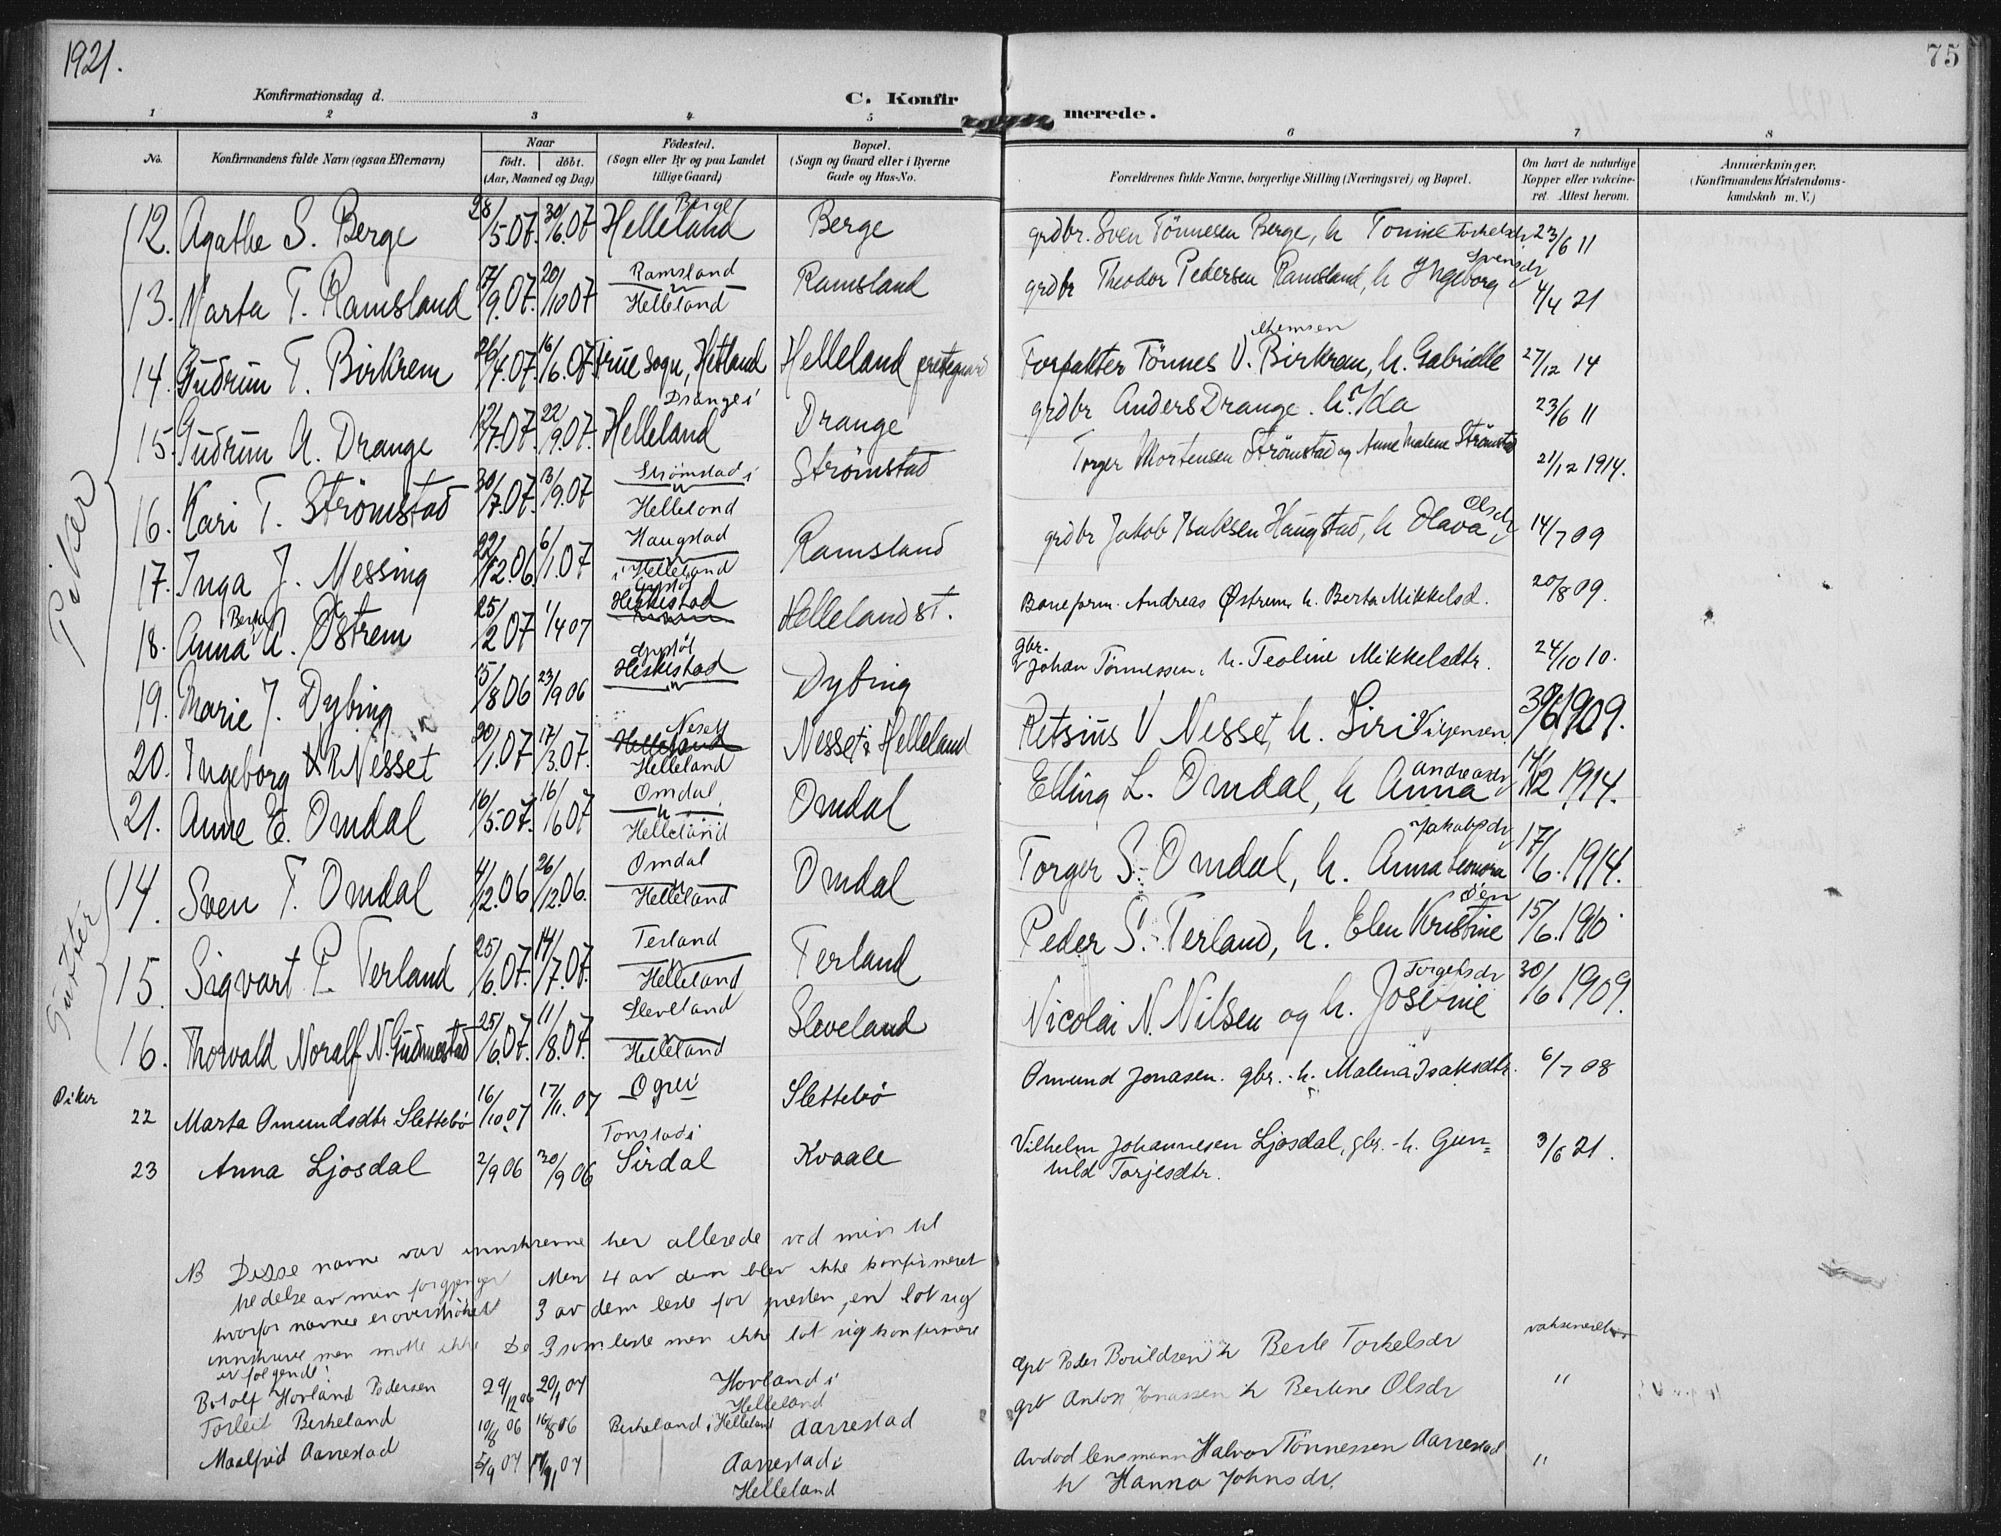 1921.
75
Konfirmationsdag d.
C. Konfir merede.
1 2 3 4 5 6 7 8
No. Konfirmandens fulde Navn (ogsaa Efternavn) Naar født. døbt. (Aar, Maaned og Dag) Fødested. (Sogn eller By og paa Landet tillige Gaard) Bopæl. (Sogn og Gaard eller i Byerne Gade og Hus-No. Forældrenes fulde Navne, borgerlige Stilling (Næringsvei) og Bopæl. Om havt de naturlige Kopper eller vakcineret. Attest herom. Anmærkninger. (Konfirmandens Kristendomskundskab m. V.)
Piker
12. Agathe S. Berge 28/5 07. 30/6 07 Berge Helleland Berge grdbr. Sven Tønnesen Berge, h Tomine Torkelsdr 23/6 11
13. Marta T. Ramsland 17/9. 07. 20/10 07 Ramsland Helleland Ramsland grdbr Theodor Pedersen Ramsland, h Ingeborg Svensdr 4/4 21
14. Gudrun T. Birkrem 26/4. 07. 16/6. 07 Frue Sogn, Hetland Helleland prestegaard Forpakter Tønnes V. Birkrem, h. Gabrielle 27/12 14
15. Gudrun A. Drange 12/7. 07. 22/9. 07. Drange i Helleland Drange grdbr Anders Drange. h. Ida 23/6 11
16. Kari T. Strømstad 30/7. 07. 13/9. 07 Strømstad i Helleland Strømstad Torger Mortensen Strømstad og Anne Malene Strømstad 21/12 1914.
17. Inga J. Messing 22/12. 06. 6/1. 07 Haugstad i Helleland Ramsland grdbr Jakob Isaksen Haugstad, h Olava Olsdr 14/7 09
18. Anna Berta A. Østrem 25/2 07 1/4 07 Heskestad Helleland st. Baneform. Andreas Østrem, h. Berta Mikkelsd. 20/8 09.
19. Marie J. Dybing 15/8 06 23/9 06 Heskestad Dybing gbr. Johan Tønnessen, h. Teoline Mikkelsdtr. 24/10 10.
20. Ingeborg R Nesset 20/1. 07 17/3. 07. Neset Helleland Helleland Nesset i Helleland Retsius V Nesset, h. Siri 30/6 1909.
21. Anne E. Omdal 16/5. 07. 16/6 07 Omdal i Helleland Omdal Elling L. Omdal, h Anna Andreasdr 14/12 1914.
Gutter
14. Sven T. Omdal 4/12. 06 26/12. 06. Omdal Helleland Omdal Torger S. Omdal, h. Anna Leonora Jakobsdr 17/6. 1914.
15. Sigvart P. Terland 25/6. 07. 14/7. 07. Terland Helleland Terland Peder S. Terland, h. Elen Kristine 15/6. 1910
16. Thorvald Noralf N. Gudmestad 25/6. 07. 11/8. 07. Sleveland Helleland Sleveland Nicolai N. Nilsen og h. Josefine Torgersdr 30/6 1909.
Piker
22 Marta Omundsdtr. Slettebø 16/10. 07 17/11. 07 Ogrei Slettebø Omund Jonasen. gbr. - h. Malena Isaksdtr. 6/7 08
23 Anna Ljosdal 2/9 06 30/9 06 Tonstad i Sirdal Kvaale Vilhelm Johannesen Ljosdal, gbr. - h. Gun=
hild Torjesdtr. 3/6 21.
NB Disse navne var innskrevne her allerede ved min til
tredelse av min forgjenger Men 4 av dem blev ikke konfirmeret
hvorfor navnee er overstrøket 3 av dem leste for presten, en lot sig
innskrive men møtte ikke De 3 som leste men ikke lot sig konfirmere
er følgende:
Botolf Hovland Pedersen 29/12 06 20/1 07 Hovland i Helleland grb Peder Bouildsen h Berte Torkelsdr vaksineret
Torleif Birkeland 10/8 06 16/8 06 Birkeland i Helleland Aarrestad grb Anton Jonassen h Bertine Olsdr "
Maalfrid Aarrestad 5/9 07 Aarrestad i Helleland Avdød lensmann Halvor Tønnessen Aarrestad
h Hanna Johnsdr. "